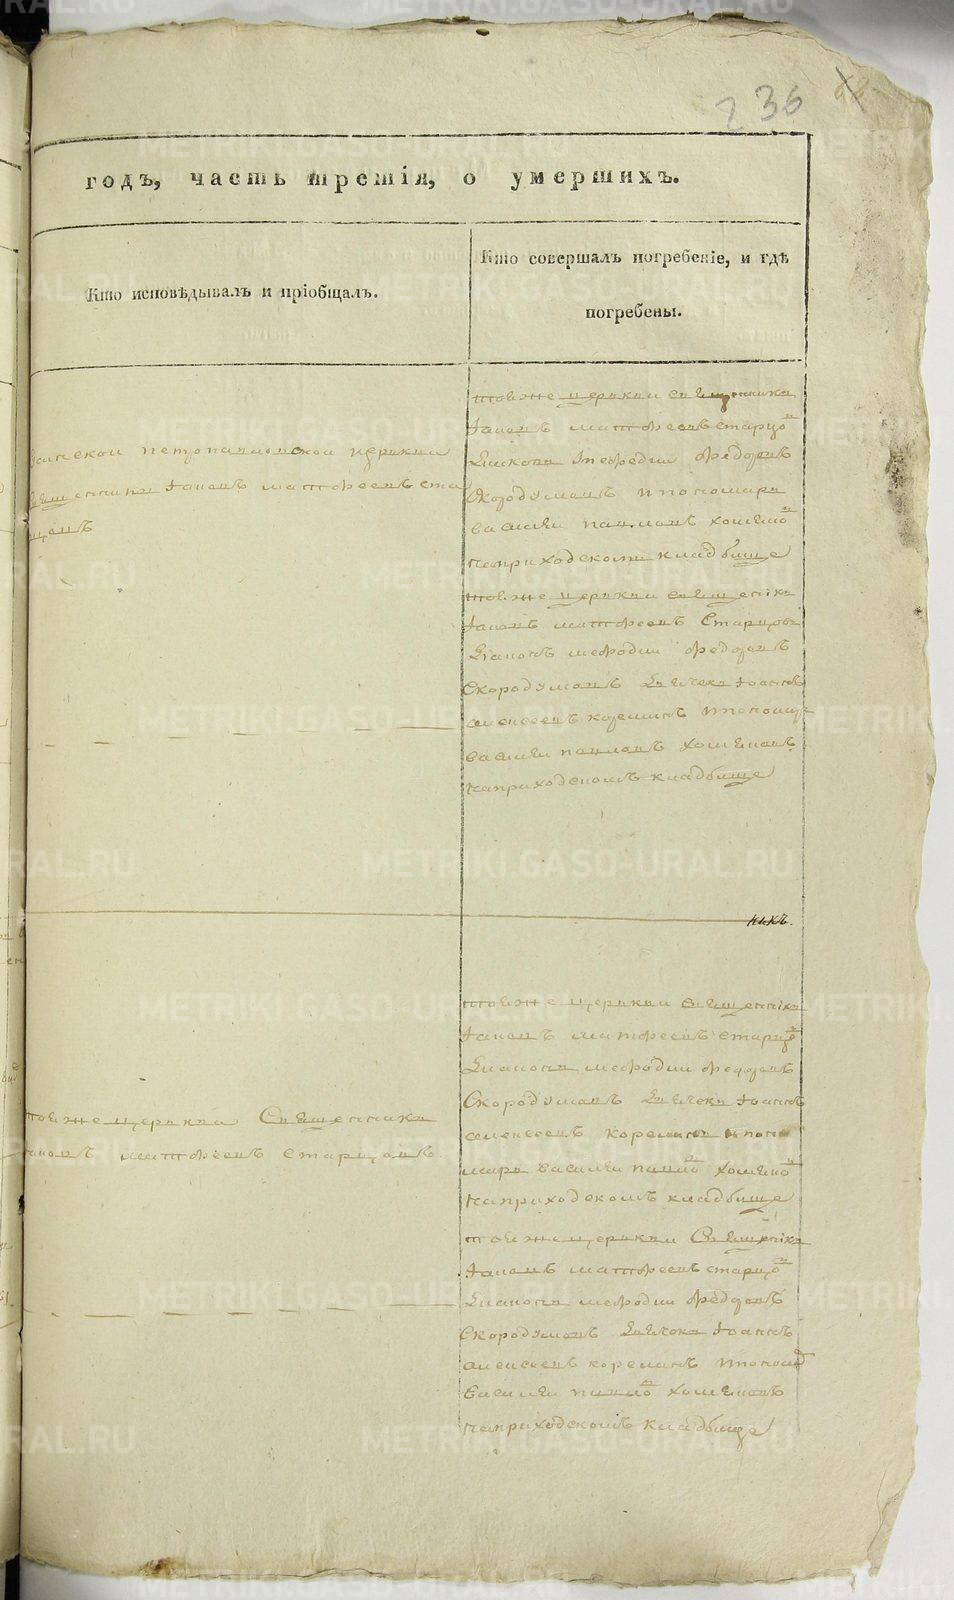 236
годъ, часть третія, о умершихъ.
Кто исповѣдывалъ и пріобщалъ.
Кто совершалъ погребеніе, и гдѣ
погребены.
Петропавловской церкви
священникъ Іаковъ Матфеевъ Ста
рцевъ
тойже церкви священникъ
Іаковъ Матфеевъ Старцовъ
Діаконъ Мефодій Федоровъ
Скородумовъ и пономарь
василей павловъ хомяковъ
наприходскомъ кладбище
тойже церкви священникъ
Іаковъ Матфеевъ Старцовъ
Діаконъ мефодій Федоровъ
Скородумовъ Дьячекъ Іоаннъ
алексеевъ и пономарь
василей павловъ хомяковъ
наприходскомъ кладбище
тойже церкви Священникъ
Іаковъ матфеевъ старцовъ
тойже церкви Священникъ
Іаковъ матфеевъ старцовъ
Діаконъ мефодій федоровъ
Скородумовъ Дьячекъ Іоаннъ
алексеевъ и поно
марь василей павловъ хомяковъ
наприходскомъ кладбище
тойже церкви Священникъ
Іаковъ матфеевъ старцовъ
Діаконъ мефодій федоровъ
Скородумовъ Дьячекъ Іоаннъ
алексеевъ и пономарь
василей павловъ хомяковъ
наприходскомъ кладбище
METRIKI.GASO-URAL.RU